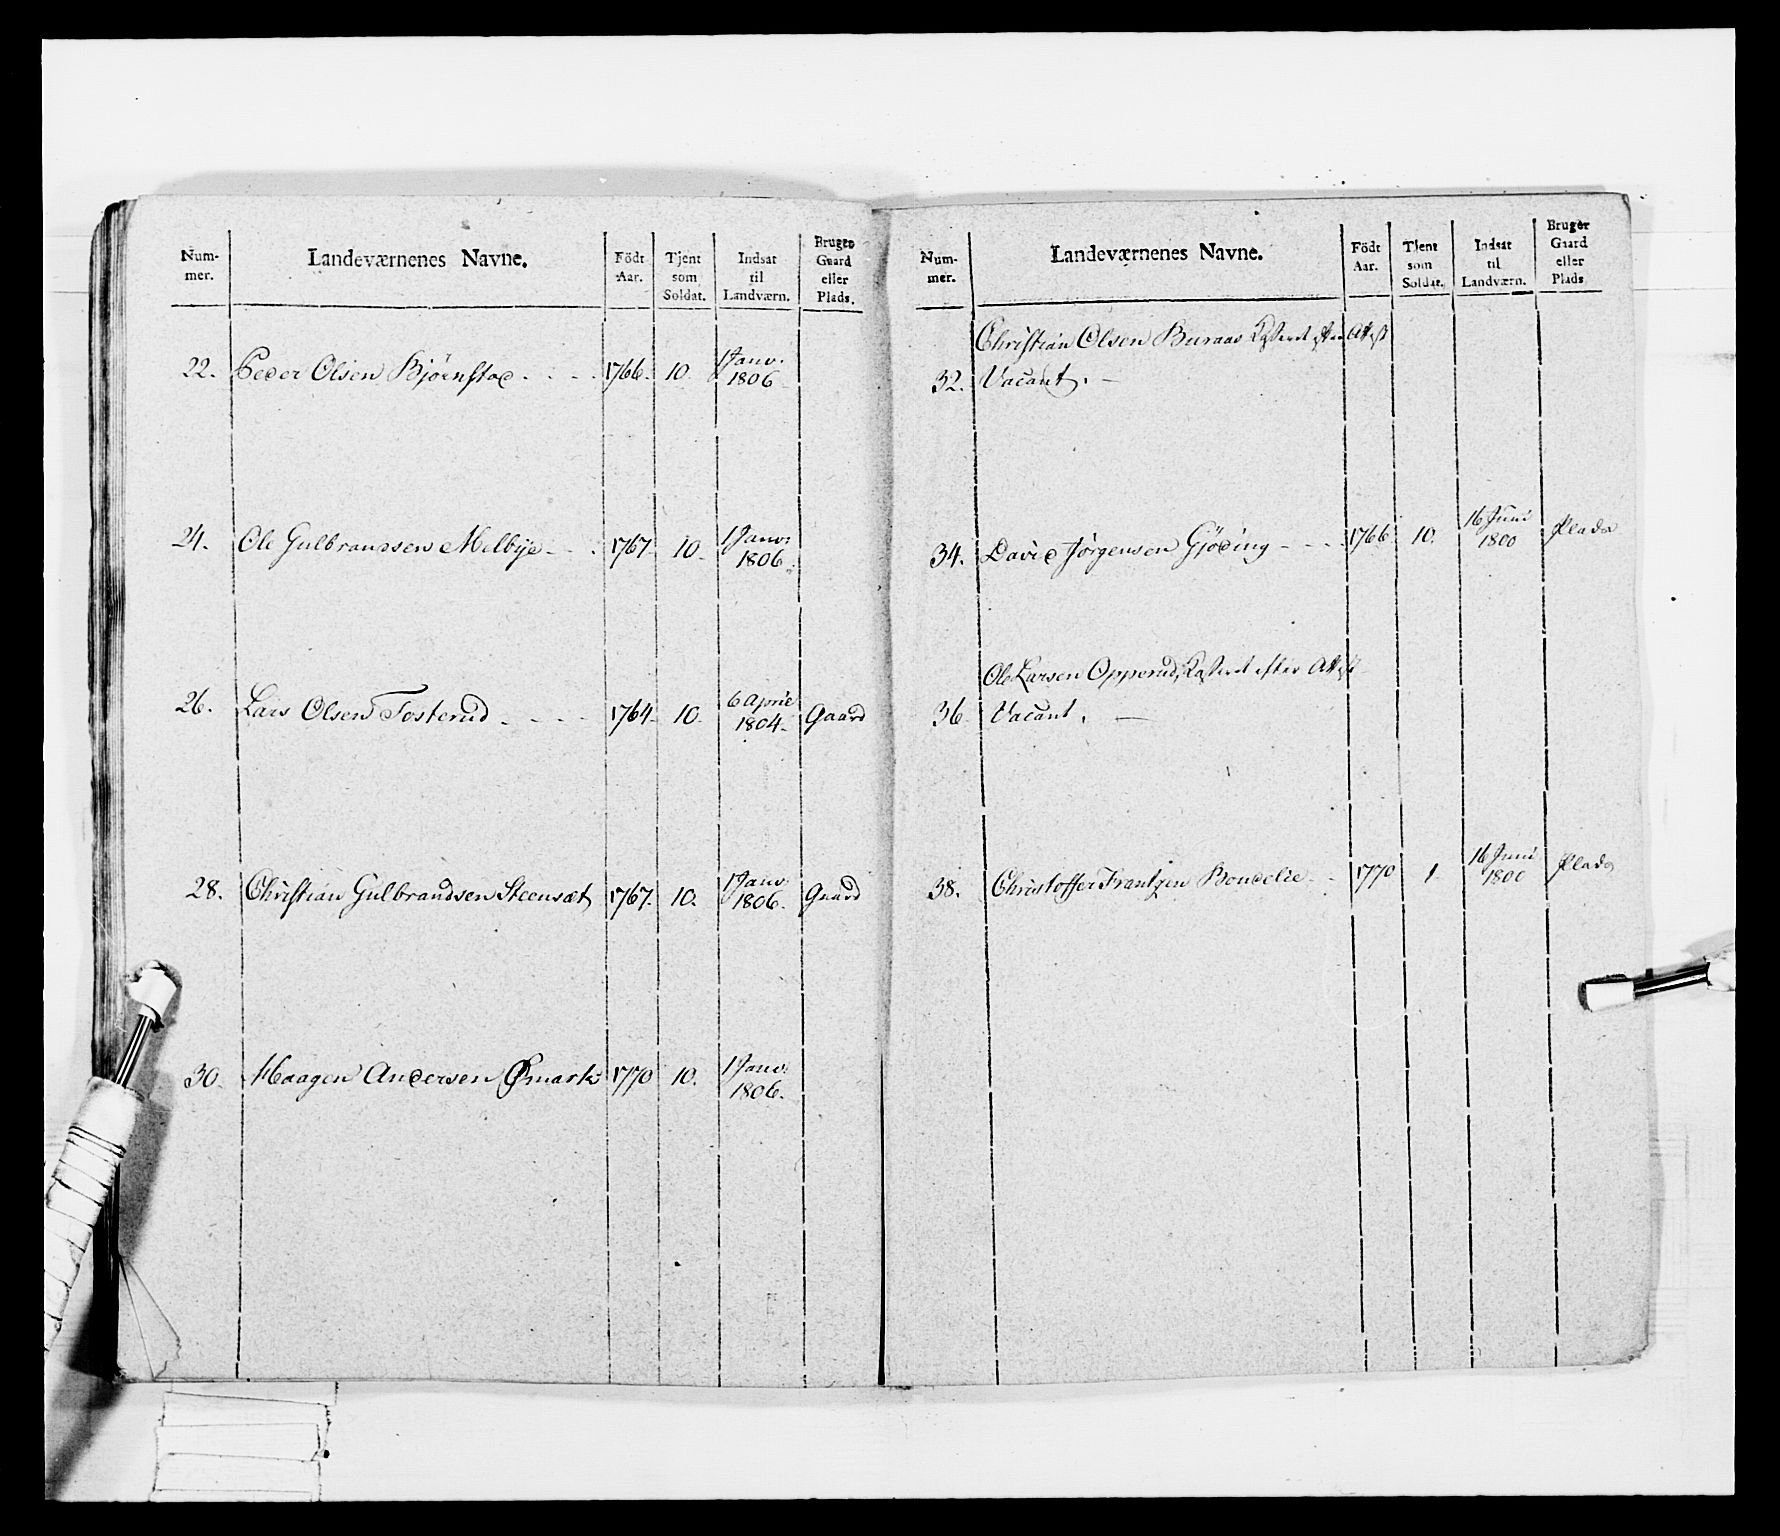 Num-
mer.
Landeværnenes Navne.
Födt
Aar.
Tjent
som
Soldat.
Indsat
til
Landværn.
Bruger
Gaard
eller
Plads.
22. Peder Olsen Bjørnstad 1766. 10. 1 Janv: 1806
24. Ole Gulbrandsen Melbye 1767 10. 1 Janv: 1806.
26. Lars Olsen Fosterud 1764. 10. 6 April 1804. Gaard
28. Christian Gulbrandsen Steensæt 1767. 10. 1 Janv: 1806. Gaard
30. Haagen Andersen Ømark 1770 10. 1 Janv: 1806.
Num-
mer.
Landeværnenes Navne.
Födt
Aar.
Tjent
som
Soldat.
Indsat
til
Landværn.
Bruger
Gaard
eller
Plads
Christian Olsen Buraas Casseret efter Attest
32. Vacant.
34. David Jørgensen Gjøding 1766 10. 16 Juni 1800 Plads
Ole Larsen Opperud, Casseret efter Attest
36 Vacant.
38. Christoffer Frantzen Bondelie 1770 1 16 Juni 1800 Plads